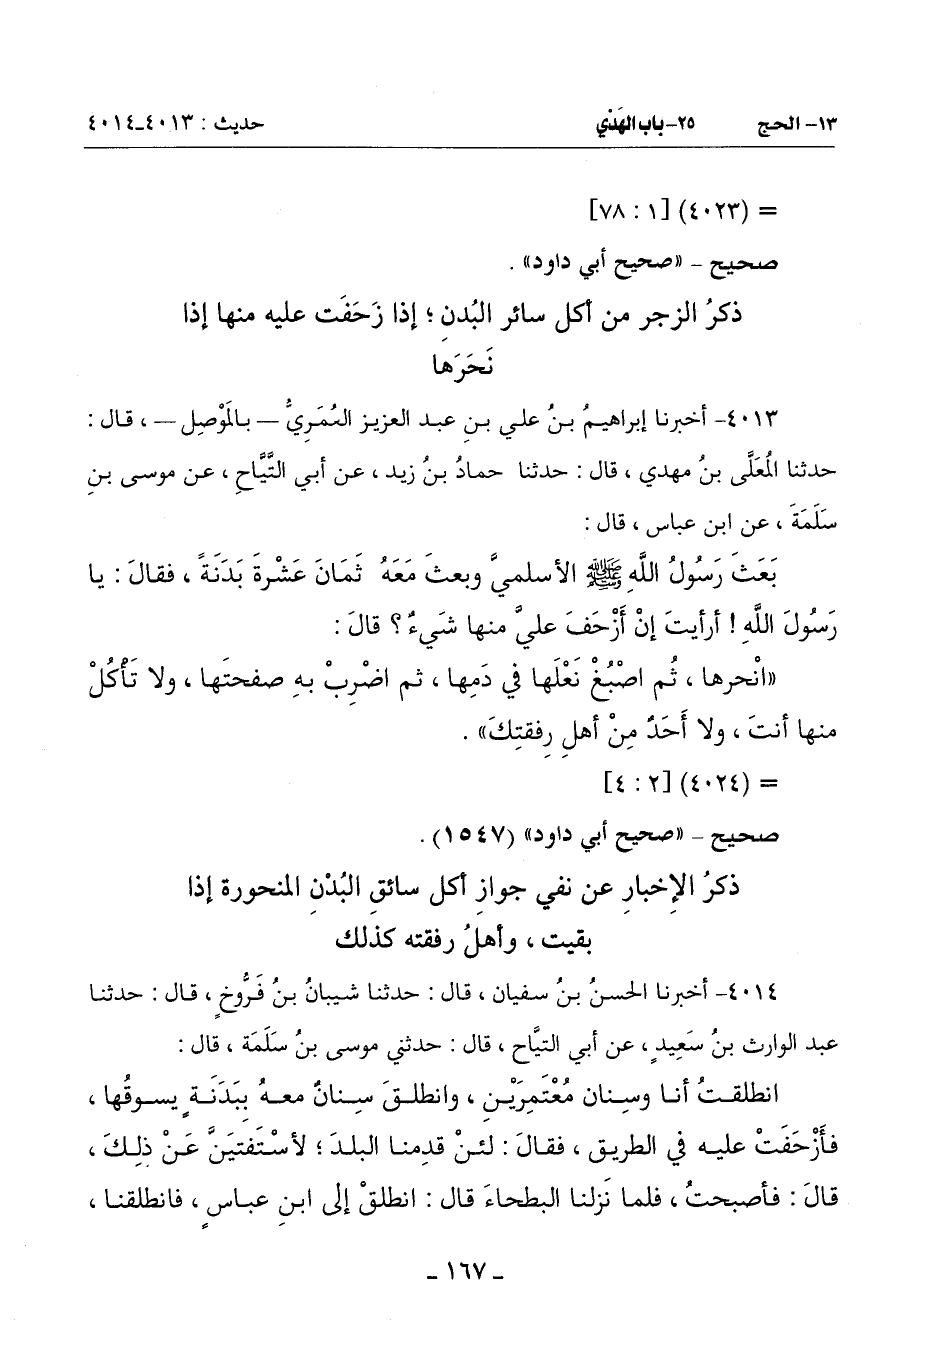 ١٣- الحج ٢٥- باب الهَدْي حديث : ٤٠١٣-٤٠١٤
= (٤٠٢٣) [١ : ٧٨]
صحيح - «صحيح أبي داود» .
ذكرُ الزجر من أكل سائر البُدنِ ؛ إذا زَحَفَت عليه منها إذا
نَحَرَها
٤٠١٣- أخبرنا إبراهيمُ بنُ علي بنِ عبد العزيز العُمَريُّ — بالمَوْصِل — ، قال :
حدثنا المُعَلَّى بنُ مهدي ، قال : حدثنا حمادُ بنُ زيد ، عن أبي التَّيَّاحِ ، عن موسى بنِ
سَلَمَةَ ، عن ابن عباس ، قال :
بَعَثَ رَسُولُ اللَّهِ ﷺ الأسلميَّ وبعثَ مَعَهُ ثَمَانَ عَشْرةَ بَدَنَةً ، فقالَ : يا
رَسُولَ اللَّهِ ! أرأيتَ إنْ أَزْحَفَ عليَّ منها شَيءٌ ؟ قالَ :
«انْحرها ، ثُم اصْبُغْ نَعْلَها في دَمِها ، ثم اضْرِبْ بهِ صفحتَها ، ولا تَأْكُلْ
منها أنتَ ، ولا أَحَدٌ مِنْ أهلِ رِفقتِكَ» .
= (٤٠٢٤) [٢ : ٤]
صحيح - «صحيح أبي داود» (١٥٤٧) .
ذكرُ الإخبارِ عن نفي جوازِ أكل سائقِ البُدْنِ المنحورة إذا
بقيت ، وأهلُ رفقته كذلك
٤٠١٤- أخبرنا الحسنُ بنُ سفيان ، قال : حدثنا شيبانُ بنُ فَرُّوخٍ ، قال : حدثنا
عبد الوارث بنُ سَعيدٍ ، عن أبي التيَّاح ، قال : حدثني موسى بنُ سَلَمَة ، قال :
انطلقتُ أنا وسِنان مُعْتَمِرَيْنِ ، وانطلقَ سِنانٌ معهُ ببَدَنَةٍ يسوقُها ،
فأَزْحَفَتْ عليه في الطريق ، فقالَ : لئنْ قدِمنا البلدَ ؛ لأسْتَفتيَنَّ عَنْ ذلِكَ ،
قالَ : فأصبحتُ ، فلما نَزلنا البطحاءَ قال : انطلقْ إلى ابنِ عباسٍ ، فانطلقنا ،
- ١٦٧ -